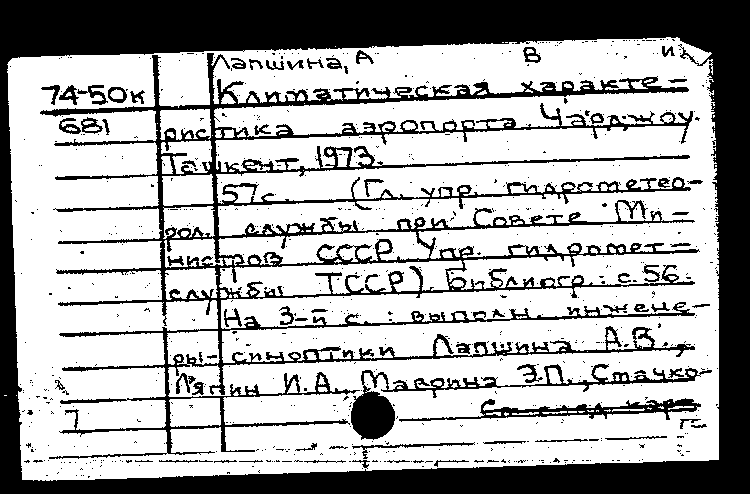 Лапшина, А В и
74-50к Климатическая характе=
681 ристика аэропорта Чарджоу.
Ташкент, 1973.
57с. (Гл. упр. гидрометео-
рол. службы при Совете Ми-
нистров СССР. Упр. гидромет=
службы ТССР). Библиогр.: с. 56.
На 3-й с.: выполн. инжене-
ры-синоптики Лапшина А.В.,
Ляпин И.А., Маврина Э.П., Стачко-
7 См след карт